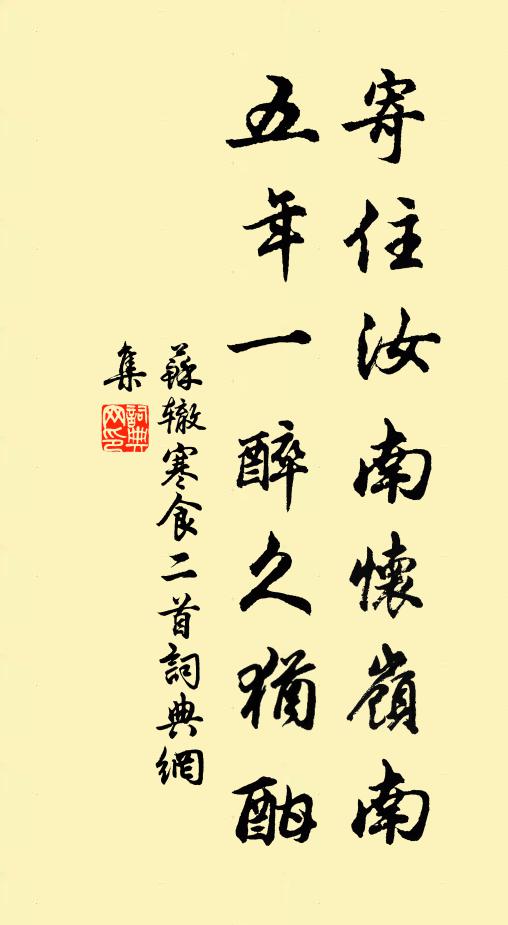 寄住汝南懷嶺南
五年一醉久猶酣
蘇辙寒食二首詞典網
集
詞典网印